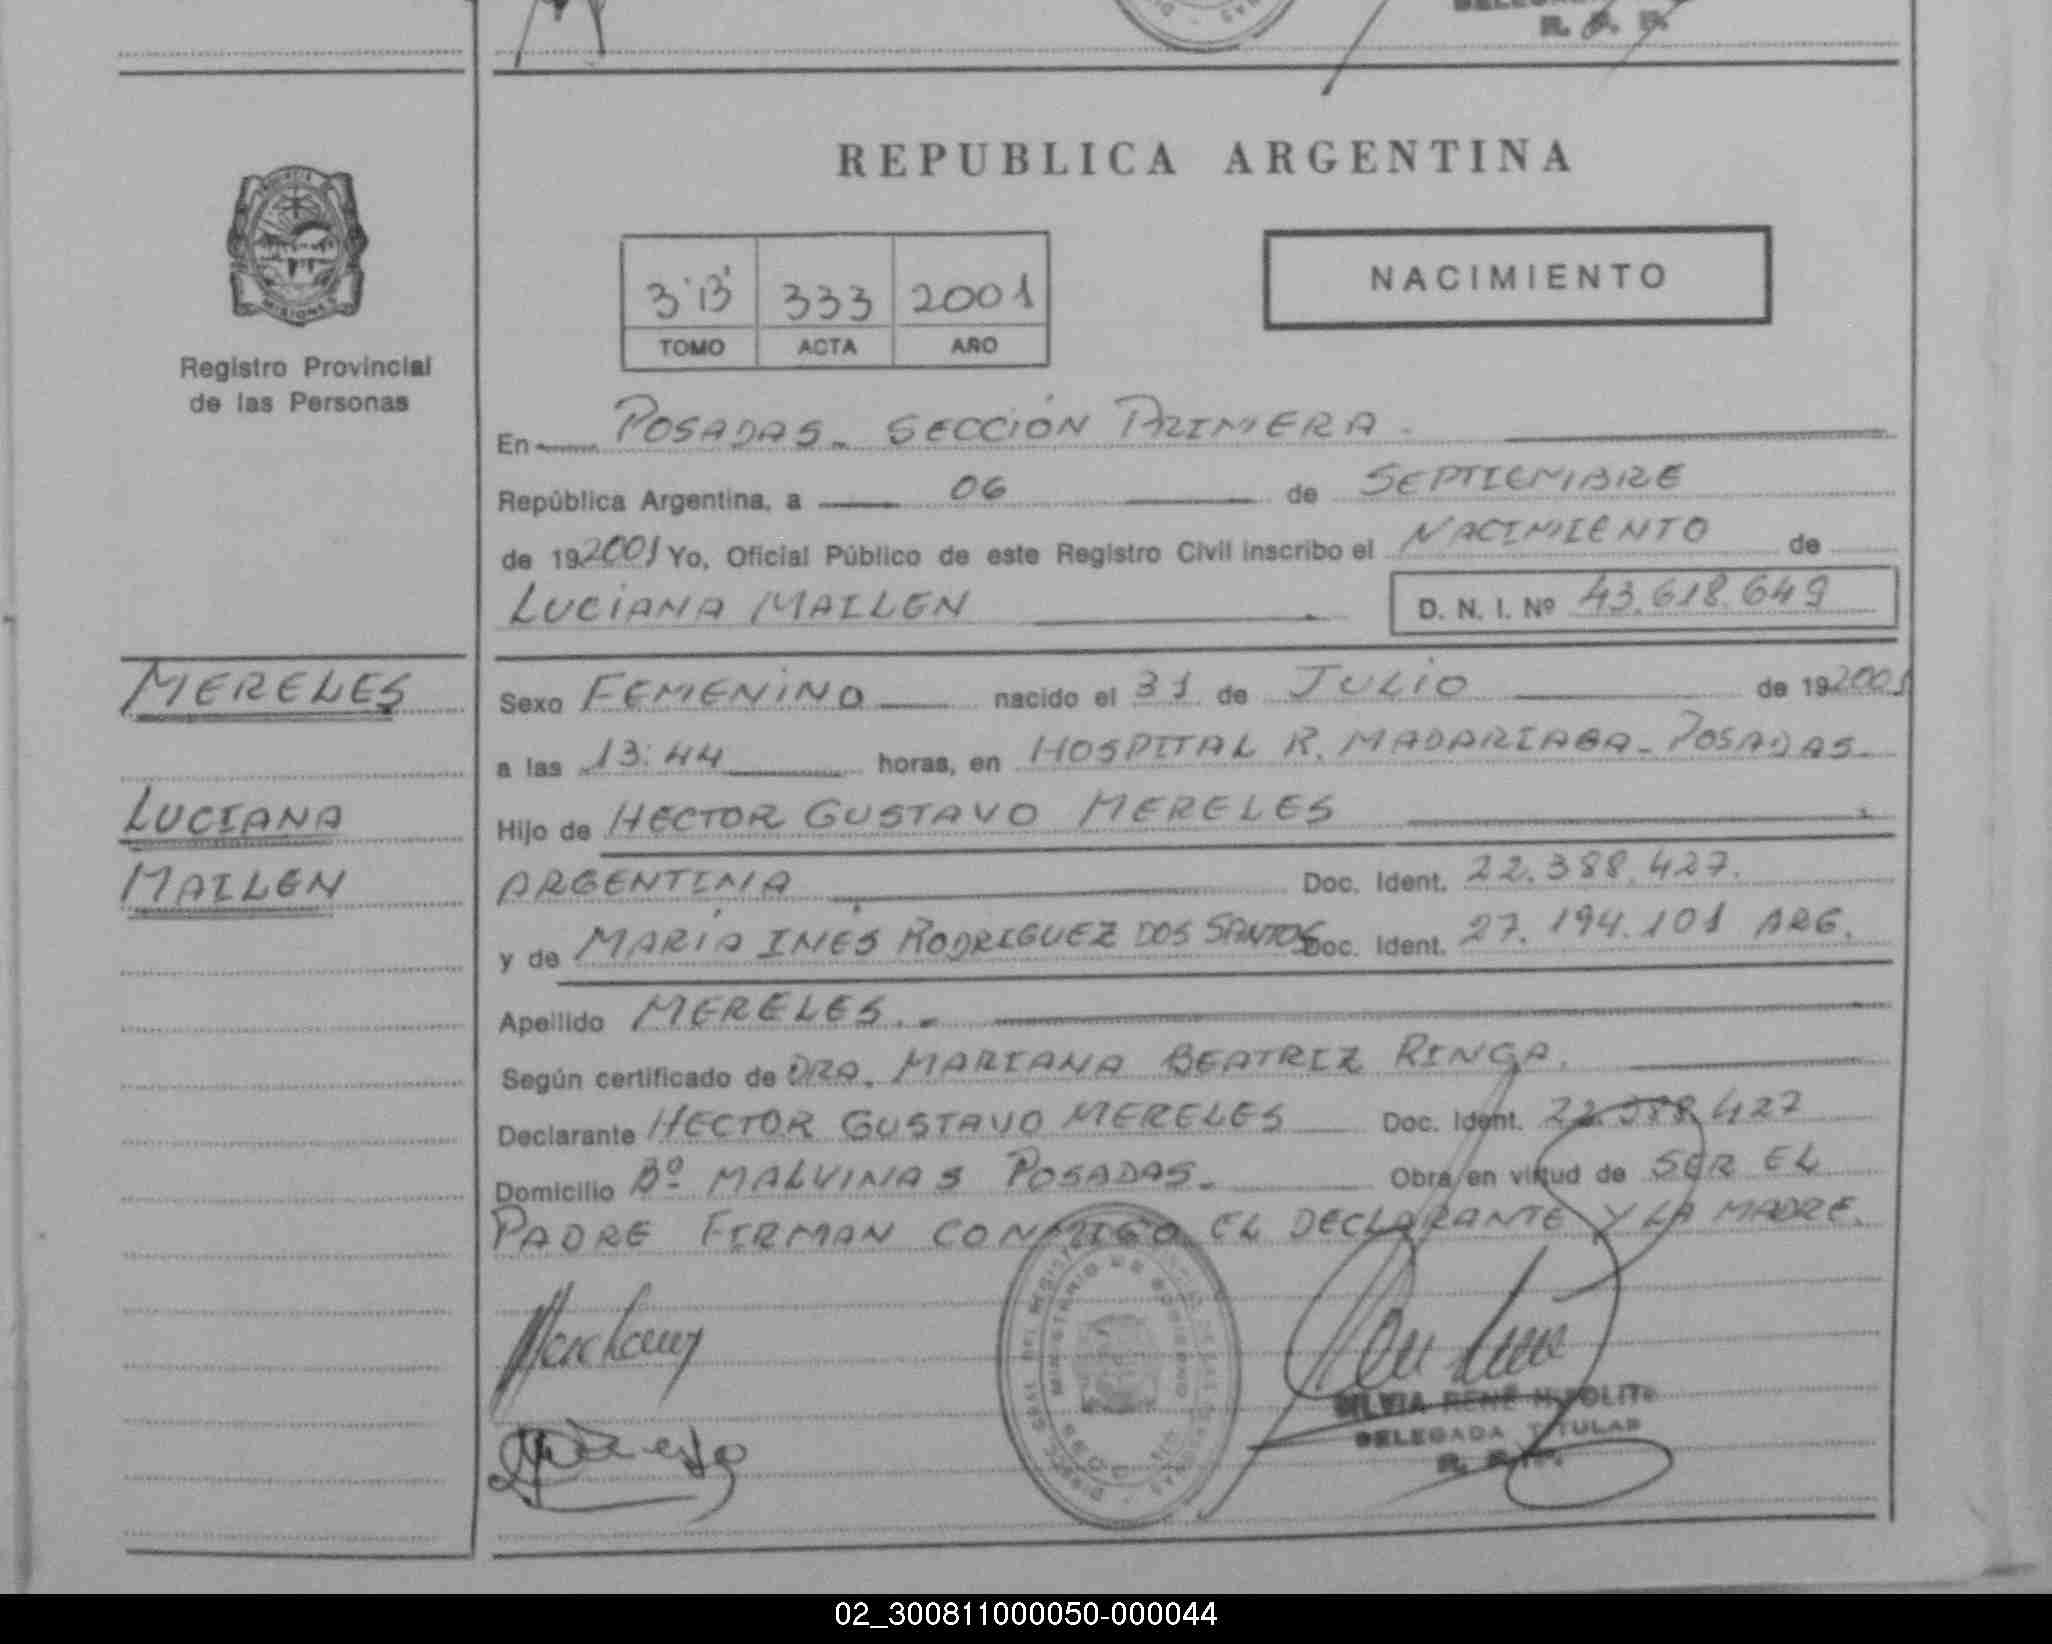 R. P. P.
REPUBLICA ARGENTINA
3'B' 333 2001
TOMO ACTA AÑO
NACIMIENTO
MISIONES
Registro Provincial
de las Personas
En POSADAS - SECCIÓN PRIMERA -
República Argentina, a 06 de SEPTIEMBRE
de 192001 Yo, Oficial Público de este Registro Civil inscribo el NACIMIENTO de
LUCIANA MAILEN D. N. I. Nº 43.618.649
MERELES
LUCIANA
MAILEN
Sexo FEMENINO nacido el 31 de JULIO de 192001
a las 13:44 horas, en HOSPITAL R. MADARIAGA - POSADAS -
Hijo de HECTOR GUSTAVO MERELES
ARGENTINA Doc. Ident. 22.388.427.
y de MARÍA INÉS RODRIGUEZ DOS SANTOS Doc. Ident. 27.194.101 ARG.
Apellido MERELES. -
Según certificado de DRA. MARIANA BEATRIZ RINGA.
Declarante HECTOR GUSTAVO MERELES Doc. Ident. 22.388.427
Domicilio Bº MALVINAS POSADAS. - Obra en virtud de SER EL
PADRE FIRMAN CONMIGO EL DECLARANTE Y LA MADRE.
MINISTERIO DE GOBIERNO
SILVIA RENÉ HIPOLITO
DELEGADA TITULAR
R. P. P.
02_300811000050-000044